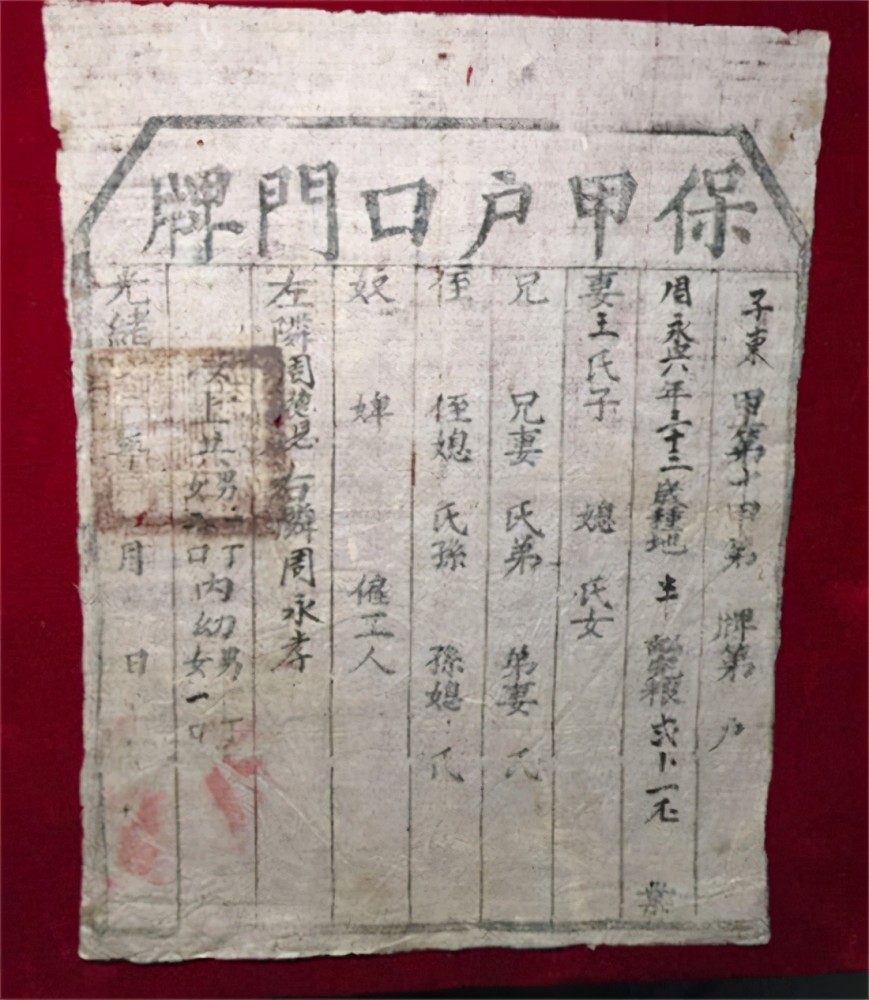 保甲户口門牌
子東 甲第十甲第 牌第 户
周永興年三十三歲種地 糧 業
妻王氏子 媳 氏女
兄 兄妻 氏弟 弟妻 氏
侄 侄媳 氏孫 孫媳 氏
奴 婢 僱工人
左隣周 右隣周永孝
以上共男一丁女 口内幼男 丁女一口
光緒 年 月 日